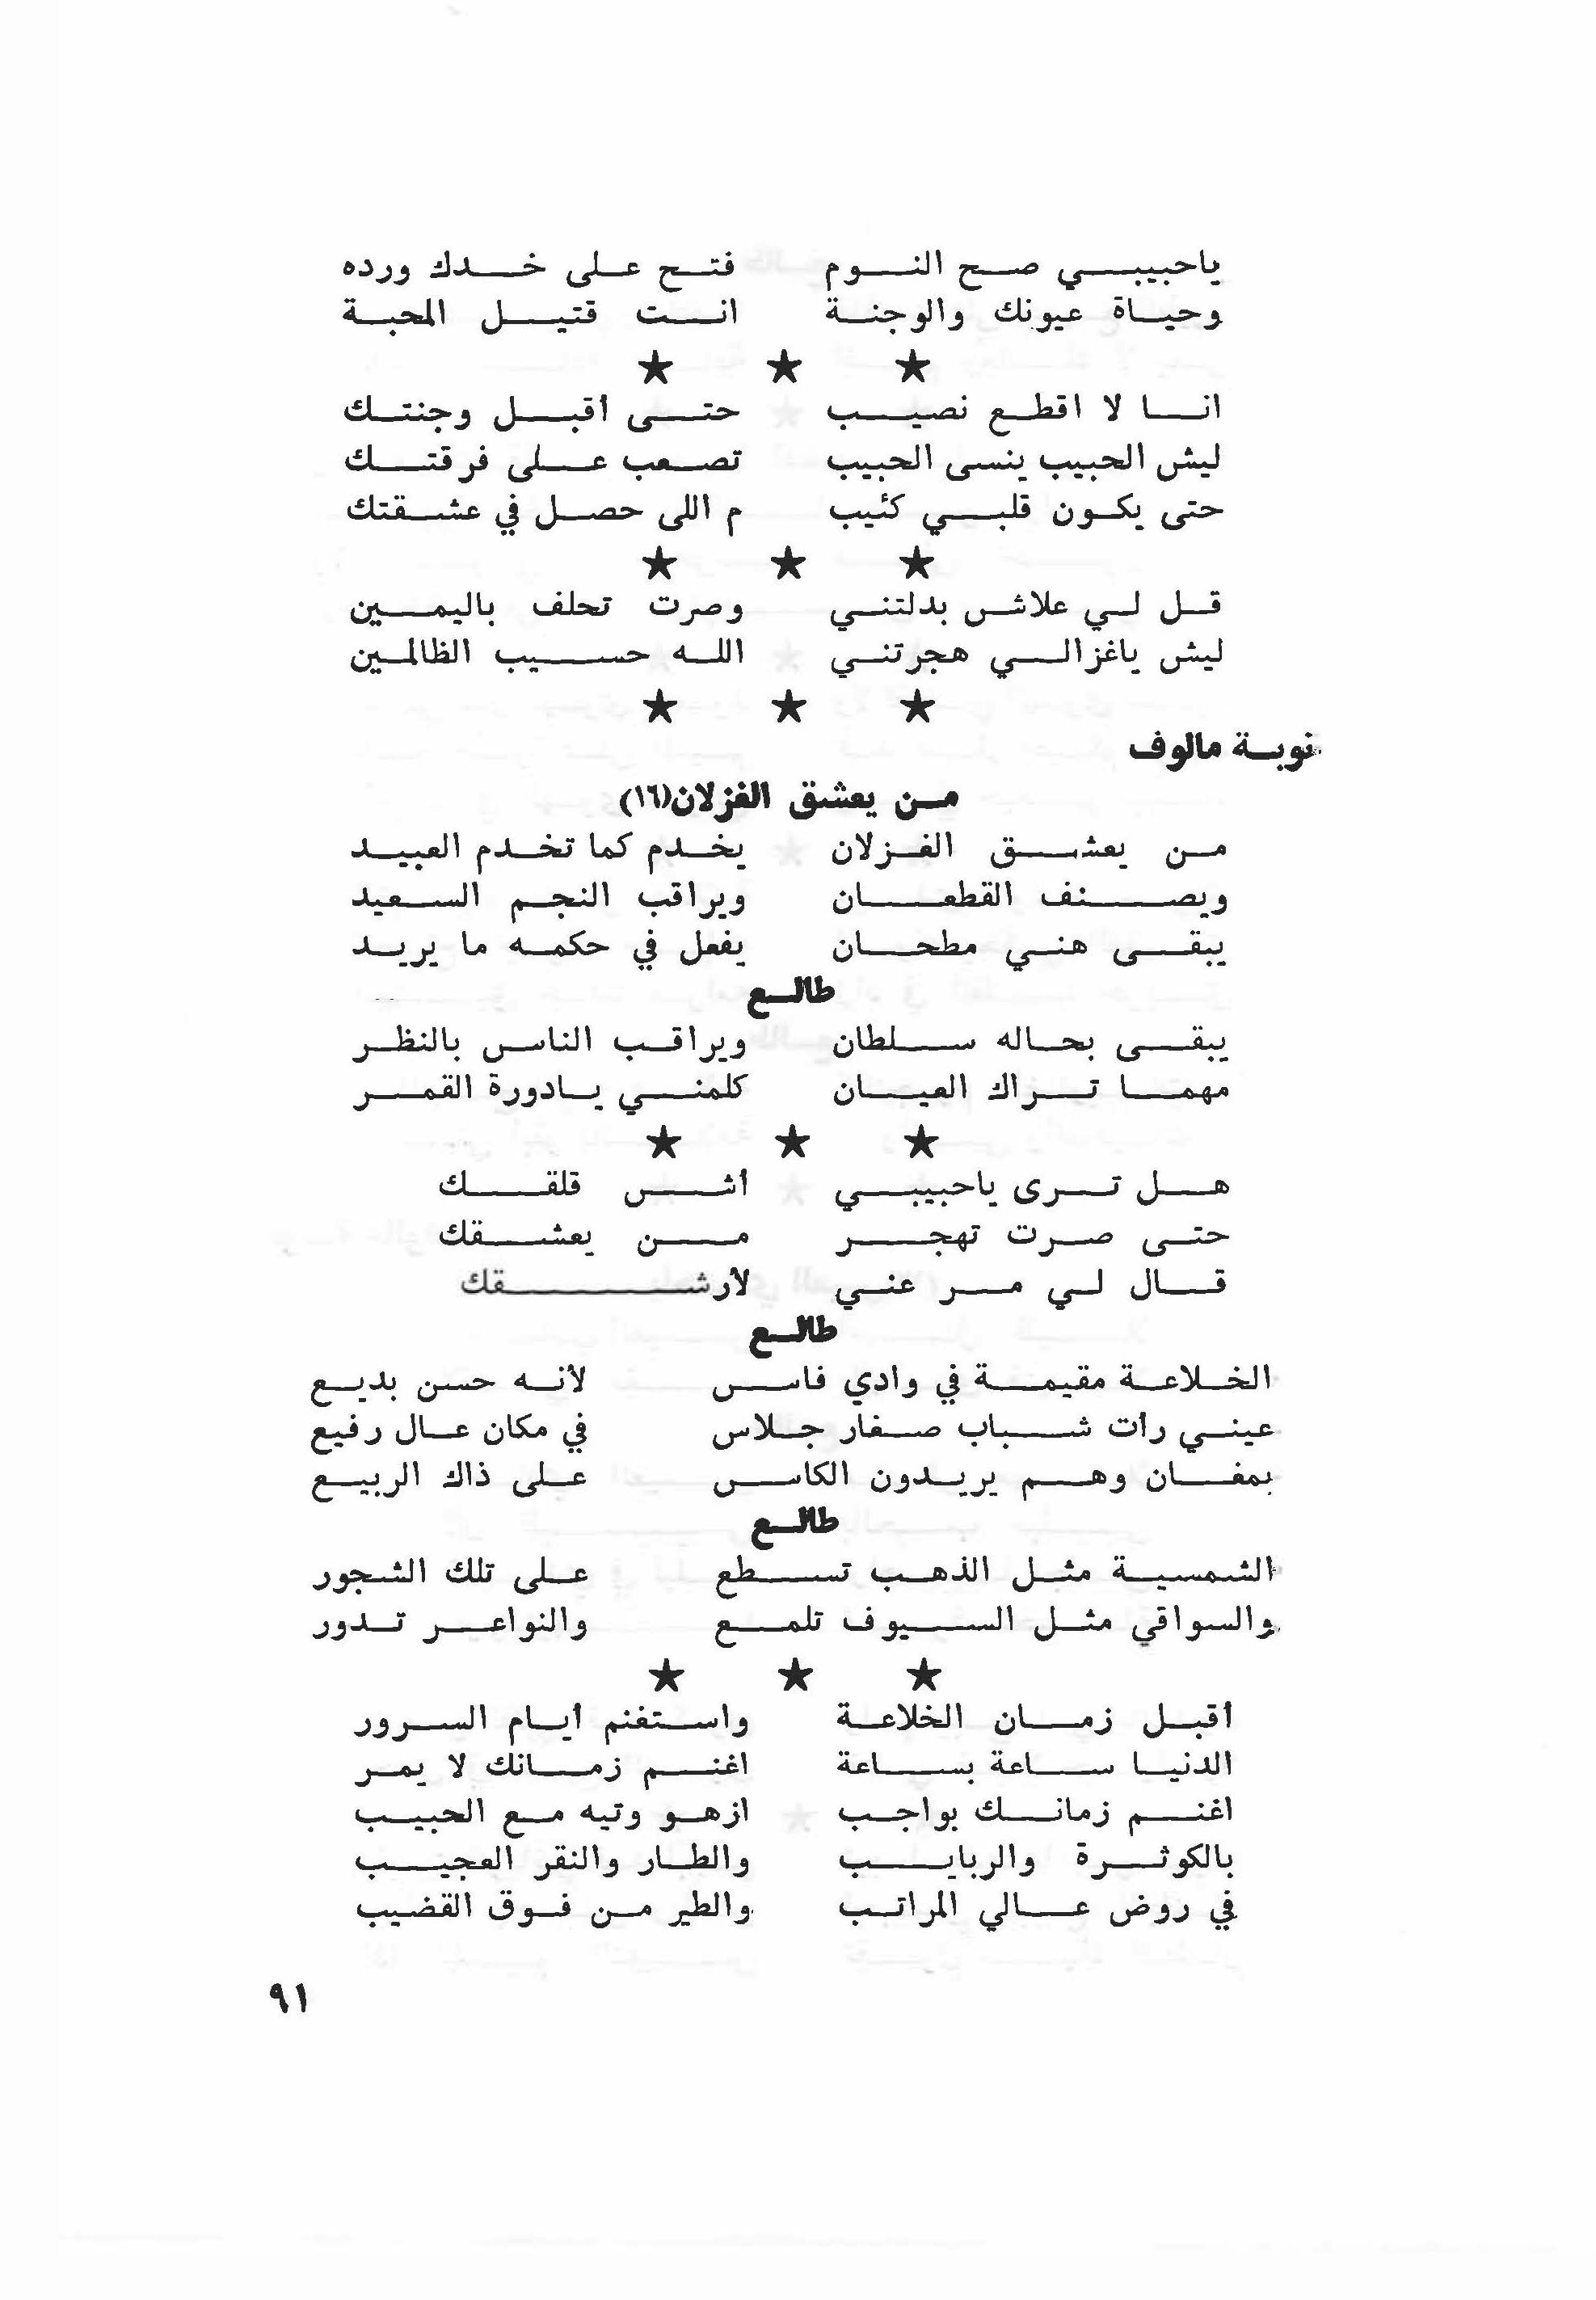 ياحبيبي صح النوم فتح على خدك ورده
وحياة عيونك والوجنة انت قتيل المحبة
★ ★ ★
انا لا اقطع نصيب حتى أقبل وجنتك
ليش الحبيب ينسى الحبيب تصعب على فرقتك
حتى يكون قلبي كئيب م اللى حصل في عشقتك
★ ★ ★
قل لي علاش بدلتني وصرت تحلف باليمين
ليش ياغزالي هجرتني الله حسيب الظالمين
★ ★ ★
نوبة مالوف
من يعشق الغزلان(١٦)
من يعشق الغزلان يخدم كما تخدم العبيد
ويصنف القطعان ويراقب النجم السعيد
يبقى هني مطحان يفعل في حكمه ما يريد
طالع
يبقى بحاله سلطان ويراقب الناس بالنظر
مهما تراك العيان كلمني يادورة القمر
★ ★ ★
هل ترى ياحبيبي أش قلقك
حتى صرت تهجر من يعشقك
قال لي مر عني لأرشقك
طالع
الخلاعة مقيمة في وادي فاس لأنه حسن بديع
عيني رأت شباب صغار جلاس في مكان عال رفيع
بمغان وهم يريدون الكاس على ذاك الربيع
طالع
الشمسية مثل الذهب تسطع على تلك الشجور
والسواقي مثل السيوف تلمع والنواعر تدور
★ ★ ★
أقبل زمان الخلاعة واستغنم أيام السرور
الدنيا ساعة بساعة اغنم زمانك لا يمر
اغنم زمانك بواجب ازهو وتيه مع الحبيب
بالكوثرة والربايب والطار والنقر العجيب
في روض عالي المراتب والطير من فوق القضيب
٩١